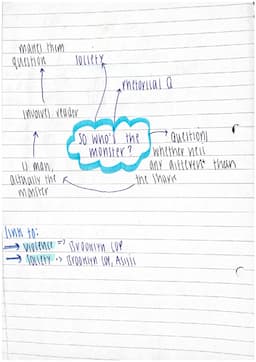 makes them
question
society
rhetorical Q
involves reader
so who's the
monster?
questions
whether he's
any different than
the shark
is man,
actually the
monster
link to:
→ violence => Brooklyn Cop
→ society => Brooklyn Cop,